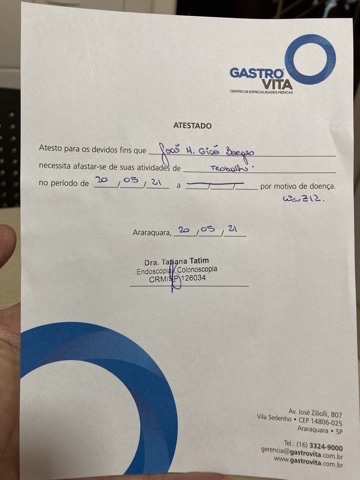 GASTRO
VITA
CENTRO DE ESPECIALIDADES MÉDICAS
ATESTADO
Atesto para os devidos fins que José H.
necessita afastar-se de suas atividades de Trabalho.
no período de 20 , 05 , 21 a por motivo de doença.
Araraquara, 20 , 05 , 21
Dra. Tatiana Tatim
Endoscopia Colonoscopia
CRM/SP 126034
Av. José Ziliolli, 807
Vila Sedenho • CEP 14806-025
Araraquara • SP
Tel.: (16) 3324-9000
gerencia@gastrovita.com.br
www.gastrovita.com.br